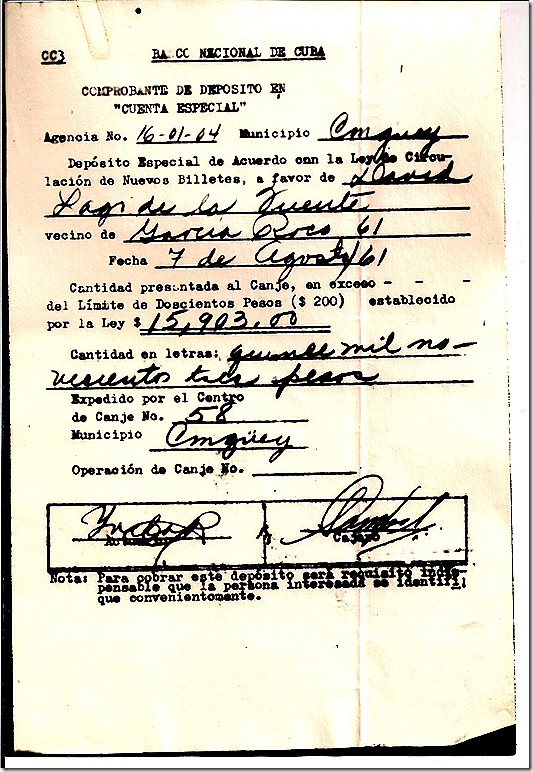 CC3 BANCO NACIONAL DE CUBA
COMPROBANTE DE DEPOSITO EN
"CUENTA ESPECIAL"
Agencia No. 16-01-04 Municipio Cmguey
Depósito Especial de Acuerdo con la Ley de Circu-
lación de Nuevos Billetes, a favor de David
Lago de la Fuente
vecino de Garcia Roco 61
Fecha 7 de Agosto/61
Cantidad presentada al Canje, en exceso - - -
del Límite de Doscientos Pesos ($ 200) establecido
por la Ley $ 15,903.00
Cantidad en letras: quince mil no-
vecientos tres pesos
Expedido por el Centro
de Canje No. 58
Municipio Cmgüey
Operación de Canje No.
Cajero
Nota: Para cobrar este depósito será requisito indis-
pensable que la persona interesada se identifi
que convenientemente.